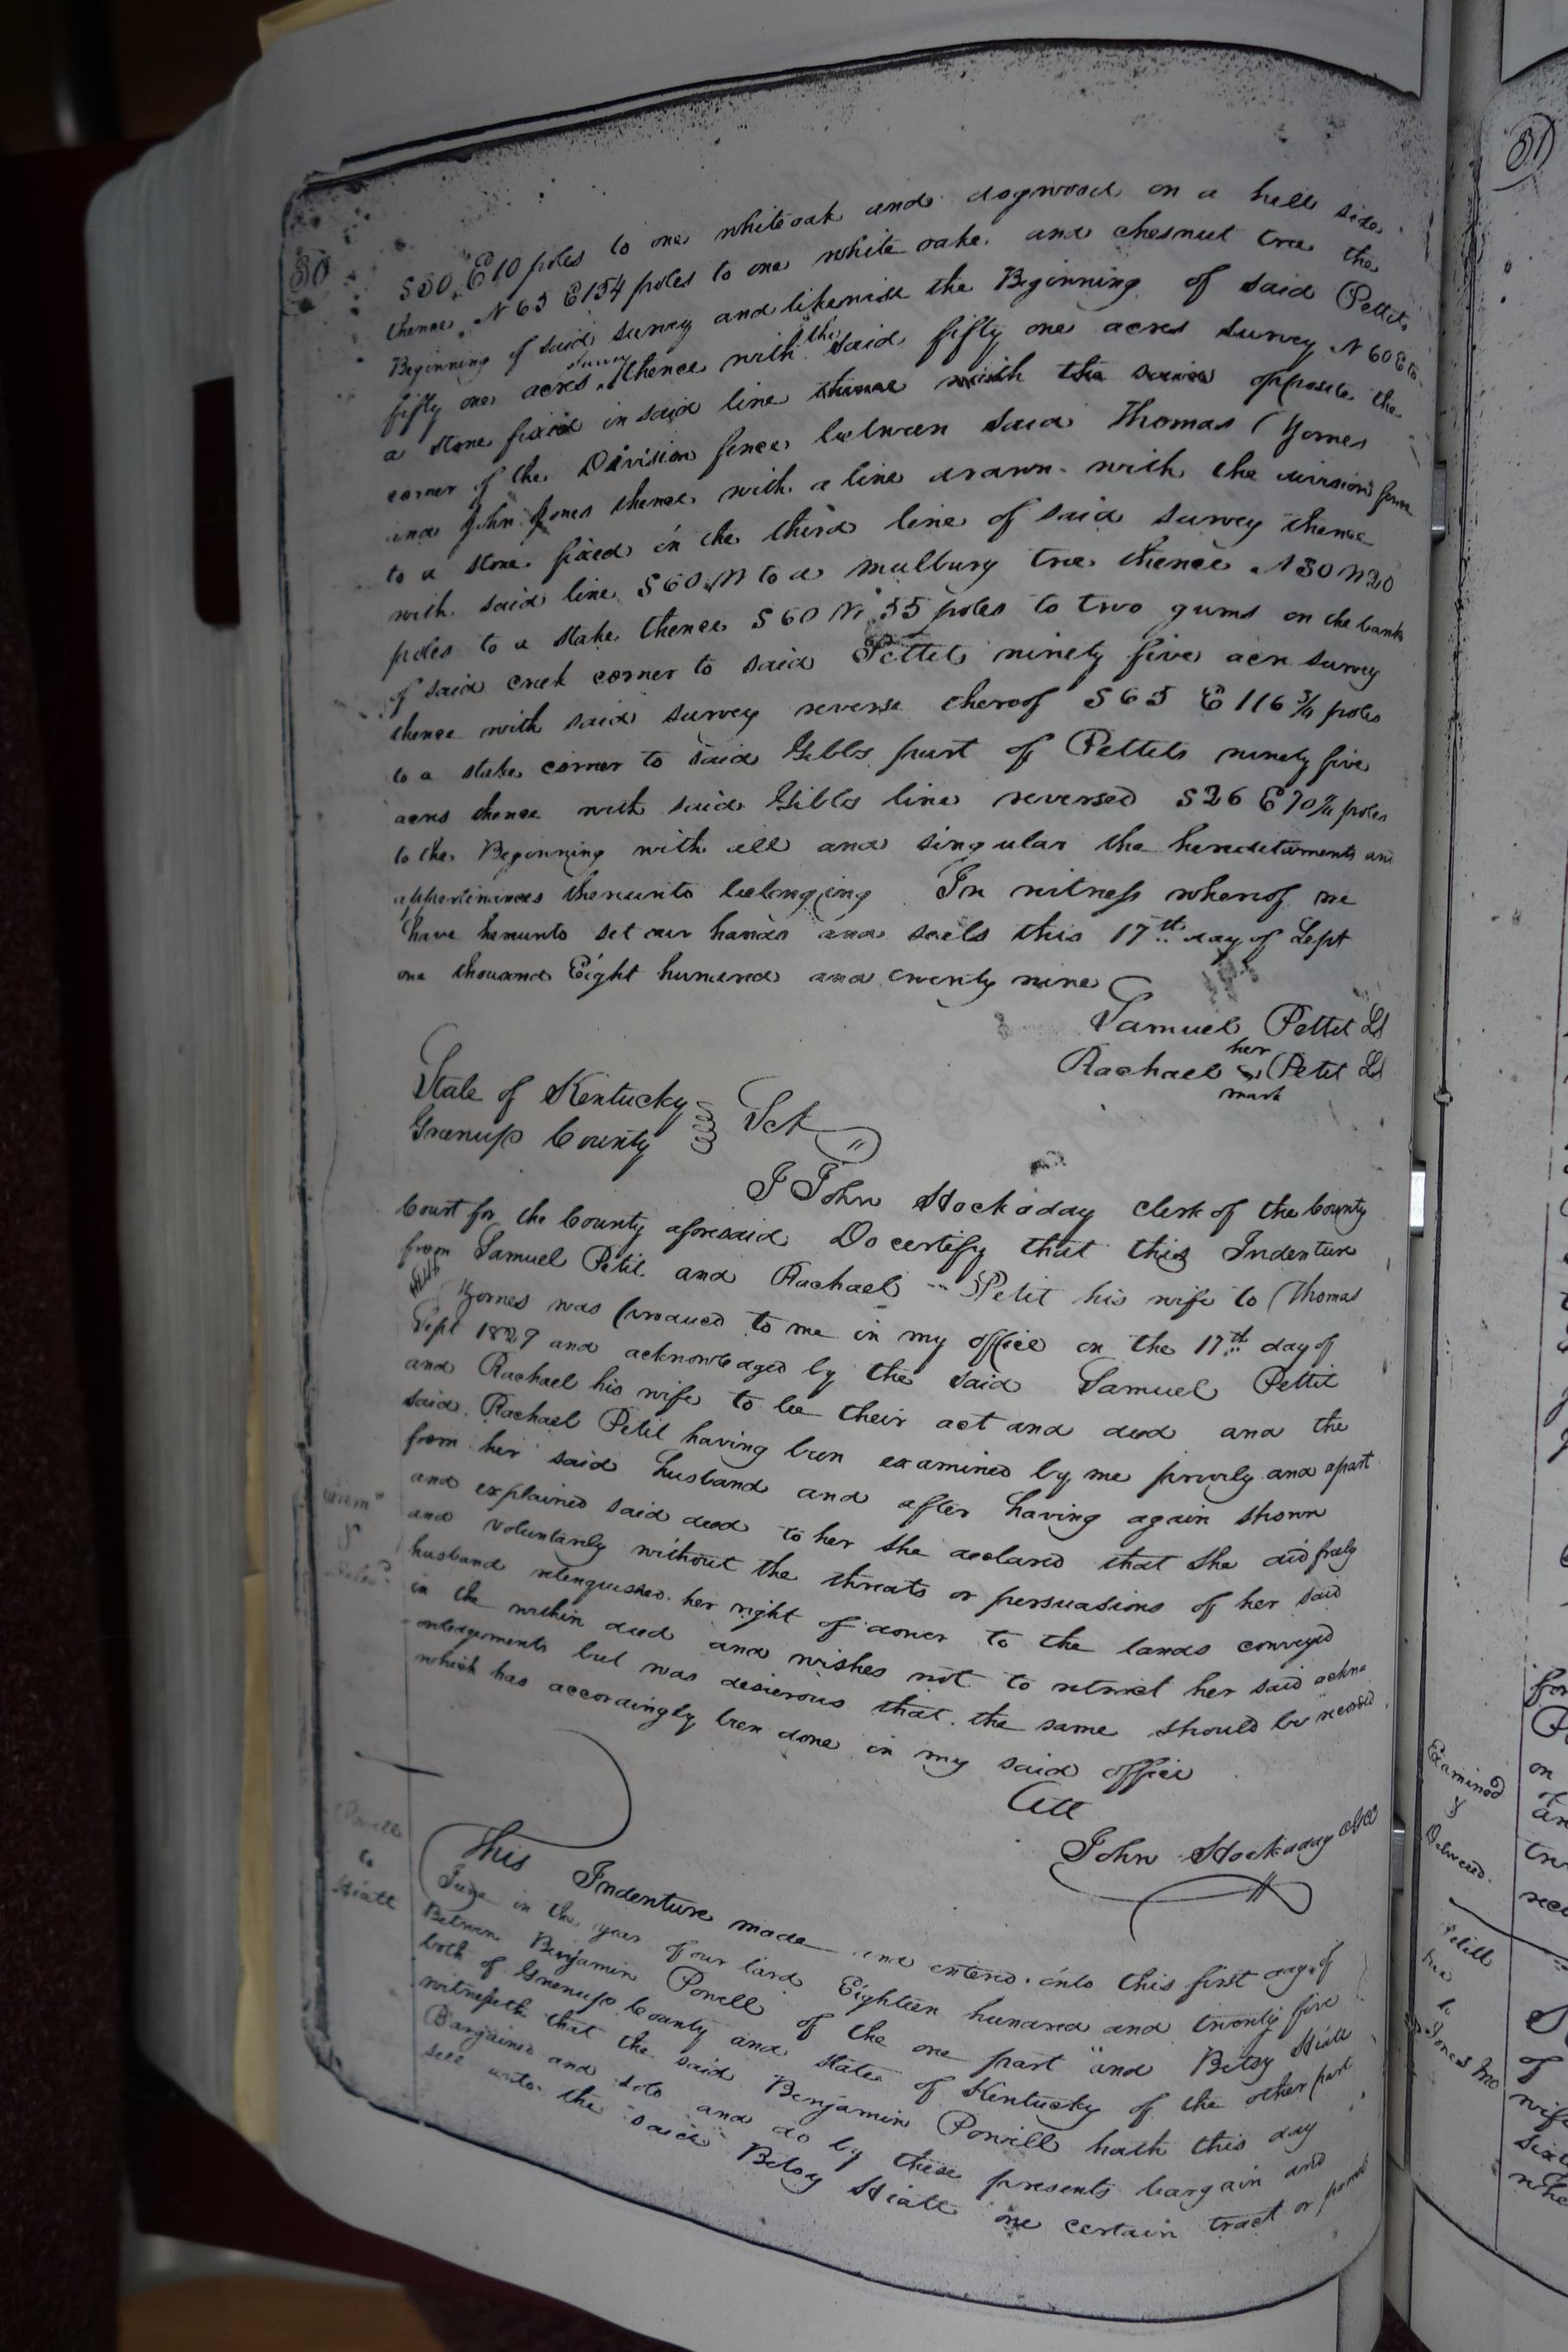 30
S 30 E 10 poles to one white oak and dogwood on a hill side
thence N 65 E 134 poles to one white oake and chesnut tree the
Beginning of said survey and likewise the Beginning of said Pettits
fifty one acres survey thence with the said fifty one acres survey N 60 E to
a stone fixed in said line opposite the
corner of the Division fence between said Thomas Yornes
and John Jones thence with a line drawn with the division fence
to a stone fixed in the third line of said survey thence
with said line S 60 W to a mulbury tree thence N 30 W 20
poles to a stake thence S 60 W 55 poles to two gums on the bank
of said creek corner to said Pettits ninety five acre survey
thence with said survey reverse thereof S 65 E 116 3/4 poles
to a stake corner to said Gibbs part of Pettits ninety five
acres thence with said Gibbs line reversed S 26 E poles
to the Beginning with all and singular the hereditaments and
appertinances thereunto belonging In witness whereof we
have hereunto set our hands and seels this 17th day of Sept
one thousand Eight hundred and twenty nine
Samuel Pettit LS
her
Rachael Petit LS
mark
State of Kentucky
Greenup County Sct
I John Hockaday clerk of the County
Court for the County aforesaid Do certify that this Indenture
from Samuel Petit and Rachael Petit his wife to Thomas
Yornes was produced to me in my office on the 17th day of
Sept 1829 and acknowledged by the said Samuel Pettit
and Rachael his wife to be their act and deed and the
said Rachael Petit having been examined by me privily and apart
from her said husband and after having again shown
and explained said deed to her she declared that she did freely
and voluntarily without the threats or persuasions of her said
husband relenquished her right of dower to the lands conveyed
in the within deed and wishes not to retract her said ackno
wledgements but was desierous that the same should be recorded
which has accordingly been done in my said office
Att
John Hockaday
Powell
to
Hiatt
This Indenture made and entered into this first day of
June in the year of our lard Eighteen hundred and twenty five
Between Benjamin Powell of the one part and Betsy Hiatt
both of Greenup County and state of Kentucky of the other part
witnesseth that the said Benjamin Powell hath this day
Bargained and sold and do by these presents bargain and
sell unto the said Betsy Hiatt one certain tract or parcel
31
Examined
&
Delivered